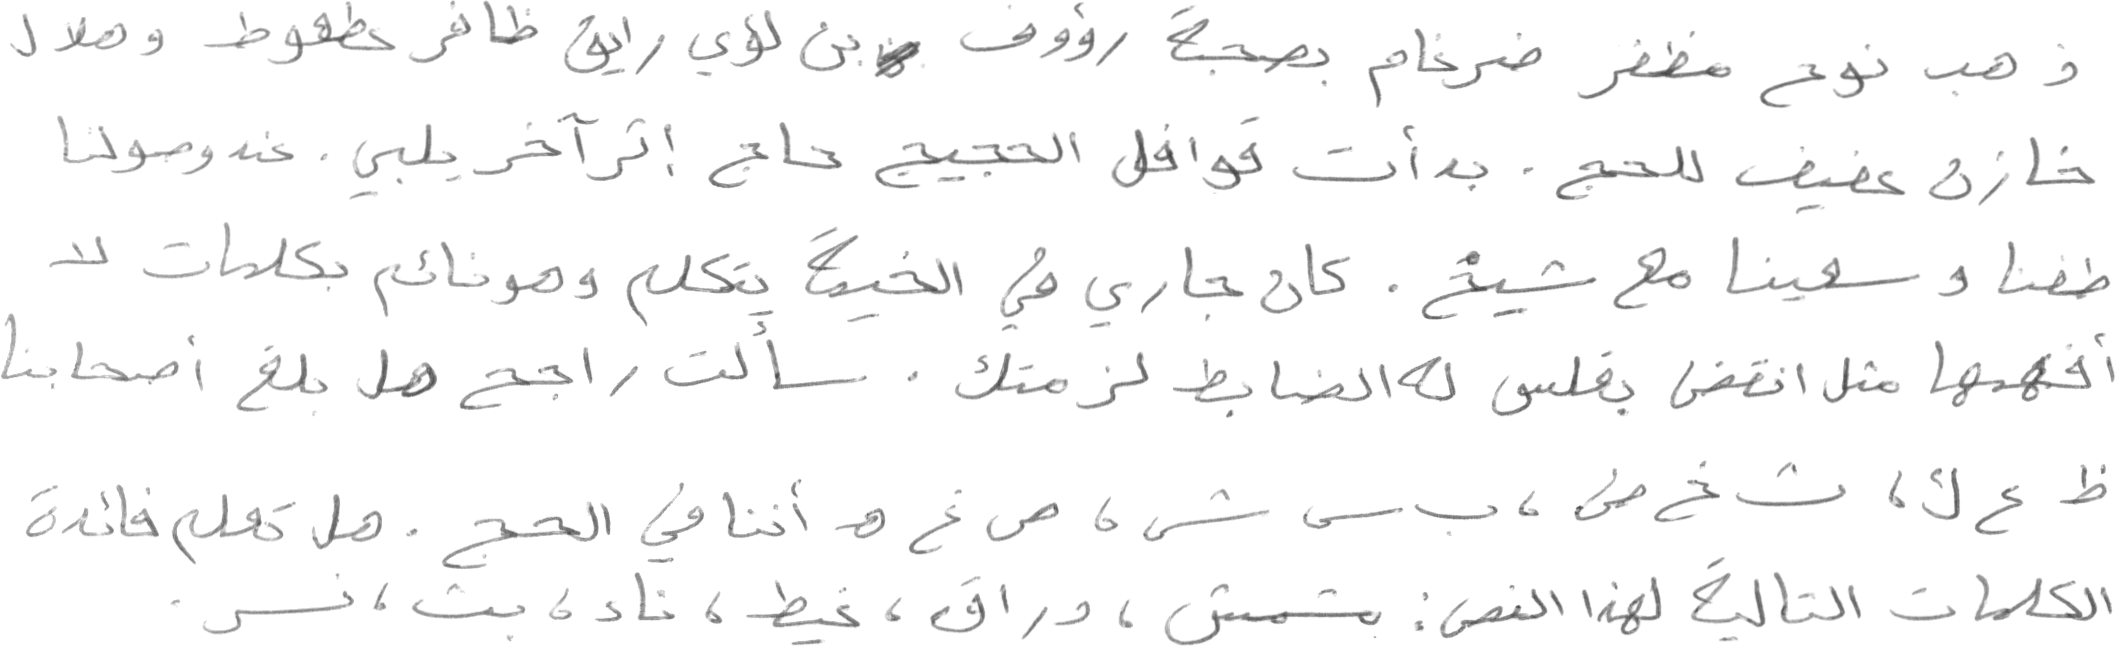 ذهب نوح مظفر ضرغام بصحبة رؤوف بن لؤي رايق ظافر حطعوط وهلال
خازن عفيف للحج . بدأت قوافل الحجيج حاج إثر آخر يلبي . عند وصولنا
طفنا وسعينا مع شيخ . كان جاري في الخيمة يتكلم وهو نائم بكلمات لا
أفهمها مثل انقض بغلس له الضابط لزمتك . سألت راجح هل بلغ أصحابنا
ظ ع ك ، ث خ ض ، ب س ش ، ص غ هـ أننا في الحج . هل تعلم فائدة
الكلمات التالية لهذا النص : مشمش ، دراق ، غيط ، ناد ، بث ، نسر .